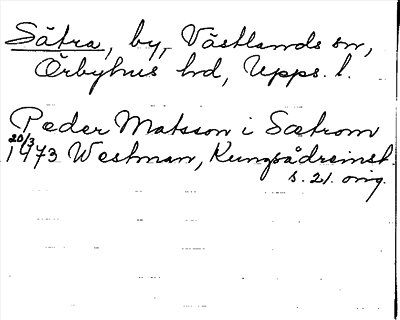 Sätra, by, Västlands sn,
Örbyhus hd, Upps. l.
Peder Matsson i Sætrom
20/3
1473 Westman, Kungsådreinst.
s. 21. orig.